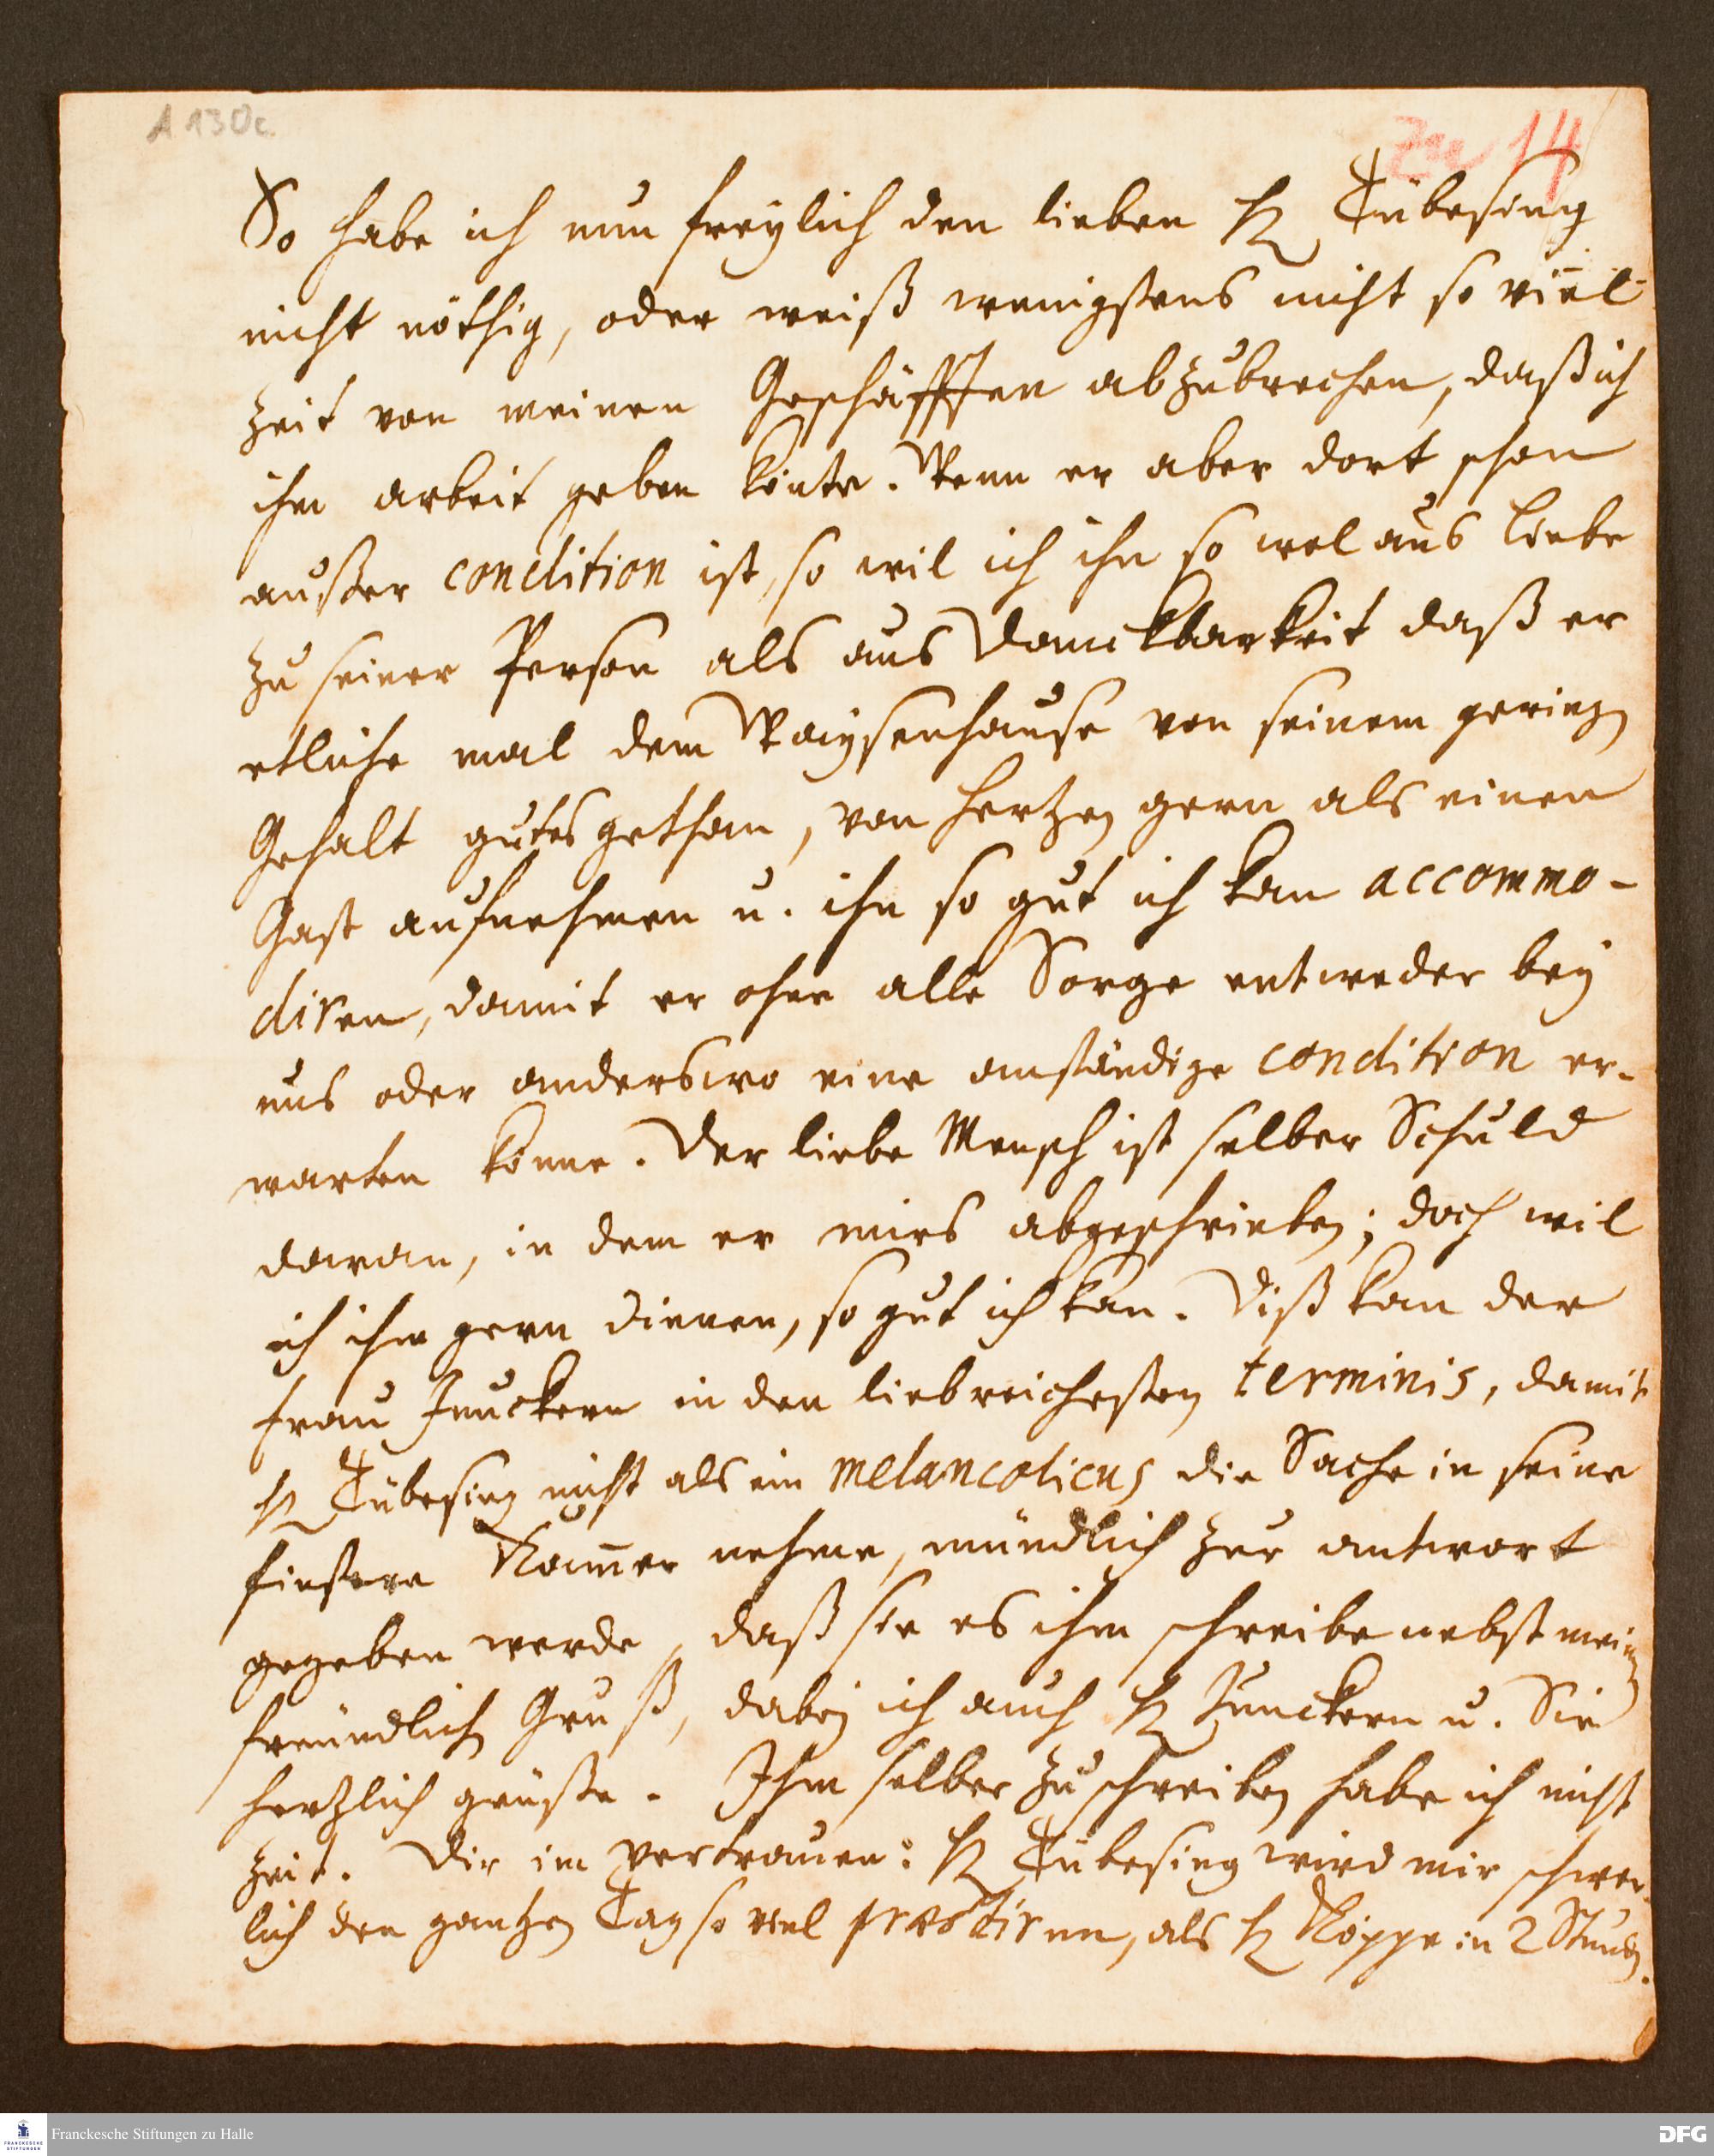 A 130c
Zu 14
So habe ich nun freylich den lieben H. Tübesing
nicht nöthig, oder weiß wenigstens nicht so viel
zeit von meinen Geschäfften abzubrechen, daß ich
ihm arbeit geben könte. Wenn er aber dort schon
außer condition ist, so wil ich ihn so wol aus Liebe
zu seiner Person als aus Danckbarkeit daß er
etliche mal dem Waysenhause von seinem geringen
Gehalt gutes gethan, von Hertzen gern als einen
Gast aufnehmen u. ihn so gut ich kan accommo-
diren, damit er ohne alle Sorge entweder bey
uns oder anderswo eine anständige condition er-
warten könne. Der liebe Mensch ist selber Schuld
daran, in dem er mirs abgeschrieben; doch wil
ich ihm gern dienen, so gut ich kan. Diß kan der
Frau Junckern in den liebreichesten terminis, damit
H. Tübesing nicht als ein melancolicus die Sache in seine
finstere Kam̅er nehme, mündlich zur antwort
gegeben werde, daß sie es ihm schreibe nebst meinem
freundlichen Gruß, dabey ich auch H. Junckern u. Sie
hertzlich grüße. Ihm selber zu schreiben habe ich nicht
zeit. Dir im vertrauen: H. Tübesing wird mir schwer-
lich den gantzen Tag so viel præstiren, als H. Köppe in 2 Stunden.
Franckesche Stiftungen zu Halle
FRANCKESCHE STIFTUNGEN
DFG